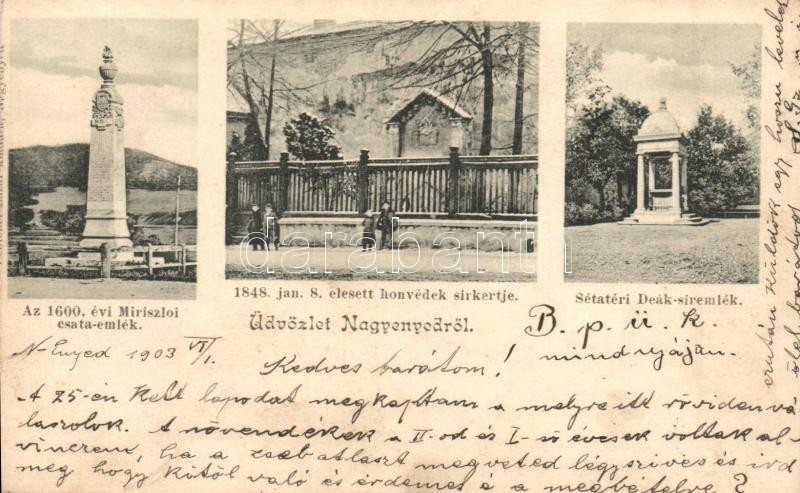 Az 1600. évi Miriszloi
csata-emlék.
1848. jan. 8. elesett honvédek sirkertje.
Sétatéri Deák-siremlék.
Üdvözlet Nagyenyedről.
darabanth.com
B. p. ü. k.
mindnyáján.
N-Enyed 1903 VI/1.
Kedves barátom!
A 25-én kelt lapodat megkaptam a melyre itt röviden vá
laszolok. A növendékek a II-od és I-ső évesek voltak al
vinczen, ha a zsebatlaszt megveted légy szives és ird
meg hogy kitől való és érdemes é a megvételre?
ezután küldök egy hosszu levelet